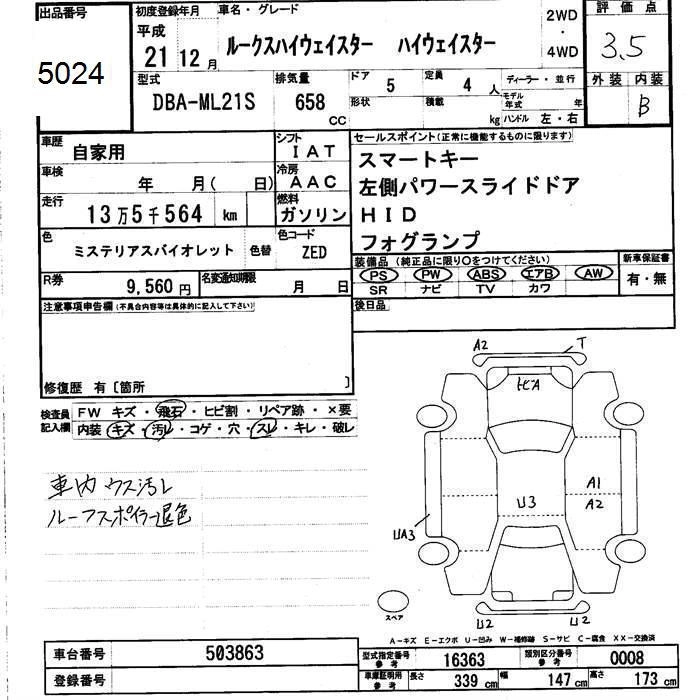 出品番号
5024
初度登録年月
平成
21 12 月
車名・グレード
ルークスハイウェイスター ハイウェイスター
2WD
・
4WD
評価点
3.5
型式
DBA-ML21S
排気量
658
CC
ドア
5
定員
4 人
形状
積載
kg
ディーラー・並行
モデル年式 年
ハンドル 左・右
外装 内装
B
車歴
自家用
シフト
IAT
車検
年 月( 日)
冷房
AAC
走行
13万5千564 km
燃料
ガソリン
色
ミステリアスバイオレット
色替
色コード
ZED
R券
9,560 円
名変通知期限
月 日
セールスポイント(正常に機能するものに限ります)
スマートキー
左側パワースライドドア
HID
フォグランプ
装備品(純正品に限り○をつけてください)
PS PW ABS エアB AW
SR ナビ TV カワ
新車保証書
有・無
注意事項申告欄(不具合内容等は具体的に記入して下さい)
後日品
修復歴 有〔箇所 〕
検査員
記入欄
FW キズ・飛石・ヒビ割・リペア跡・×要
内装 キズ・汚レ・コゲ・穴・スレ・キレ・破レ
車内 ウス汚レ
ルーフスポイラー退色
A2
T
トビA
A1
A2
U3
UA3
スペア
U2
U2
A-キズ E-エクボ U-凹み W-補修跡 S-サビ C-腐食 XX-交換済
車台番号
503863
登録番号
型式指定番号
参考
16363
類別区分番号
参考
0008
車庫証明用
参考
長さ
339 cm
幅
147 cm
高さ
173 cm